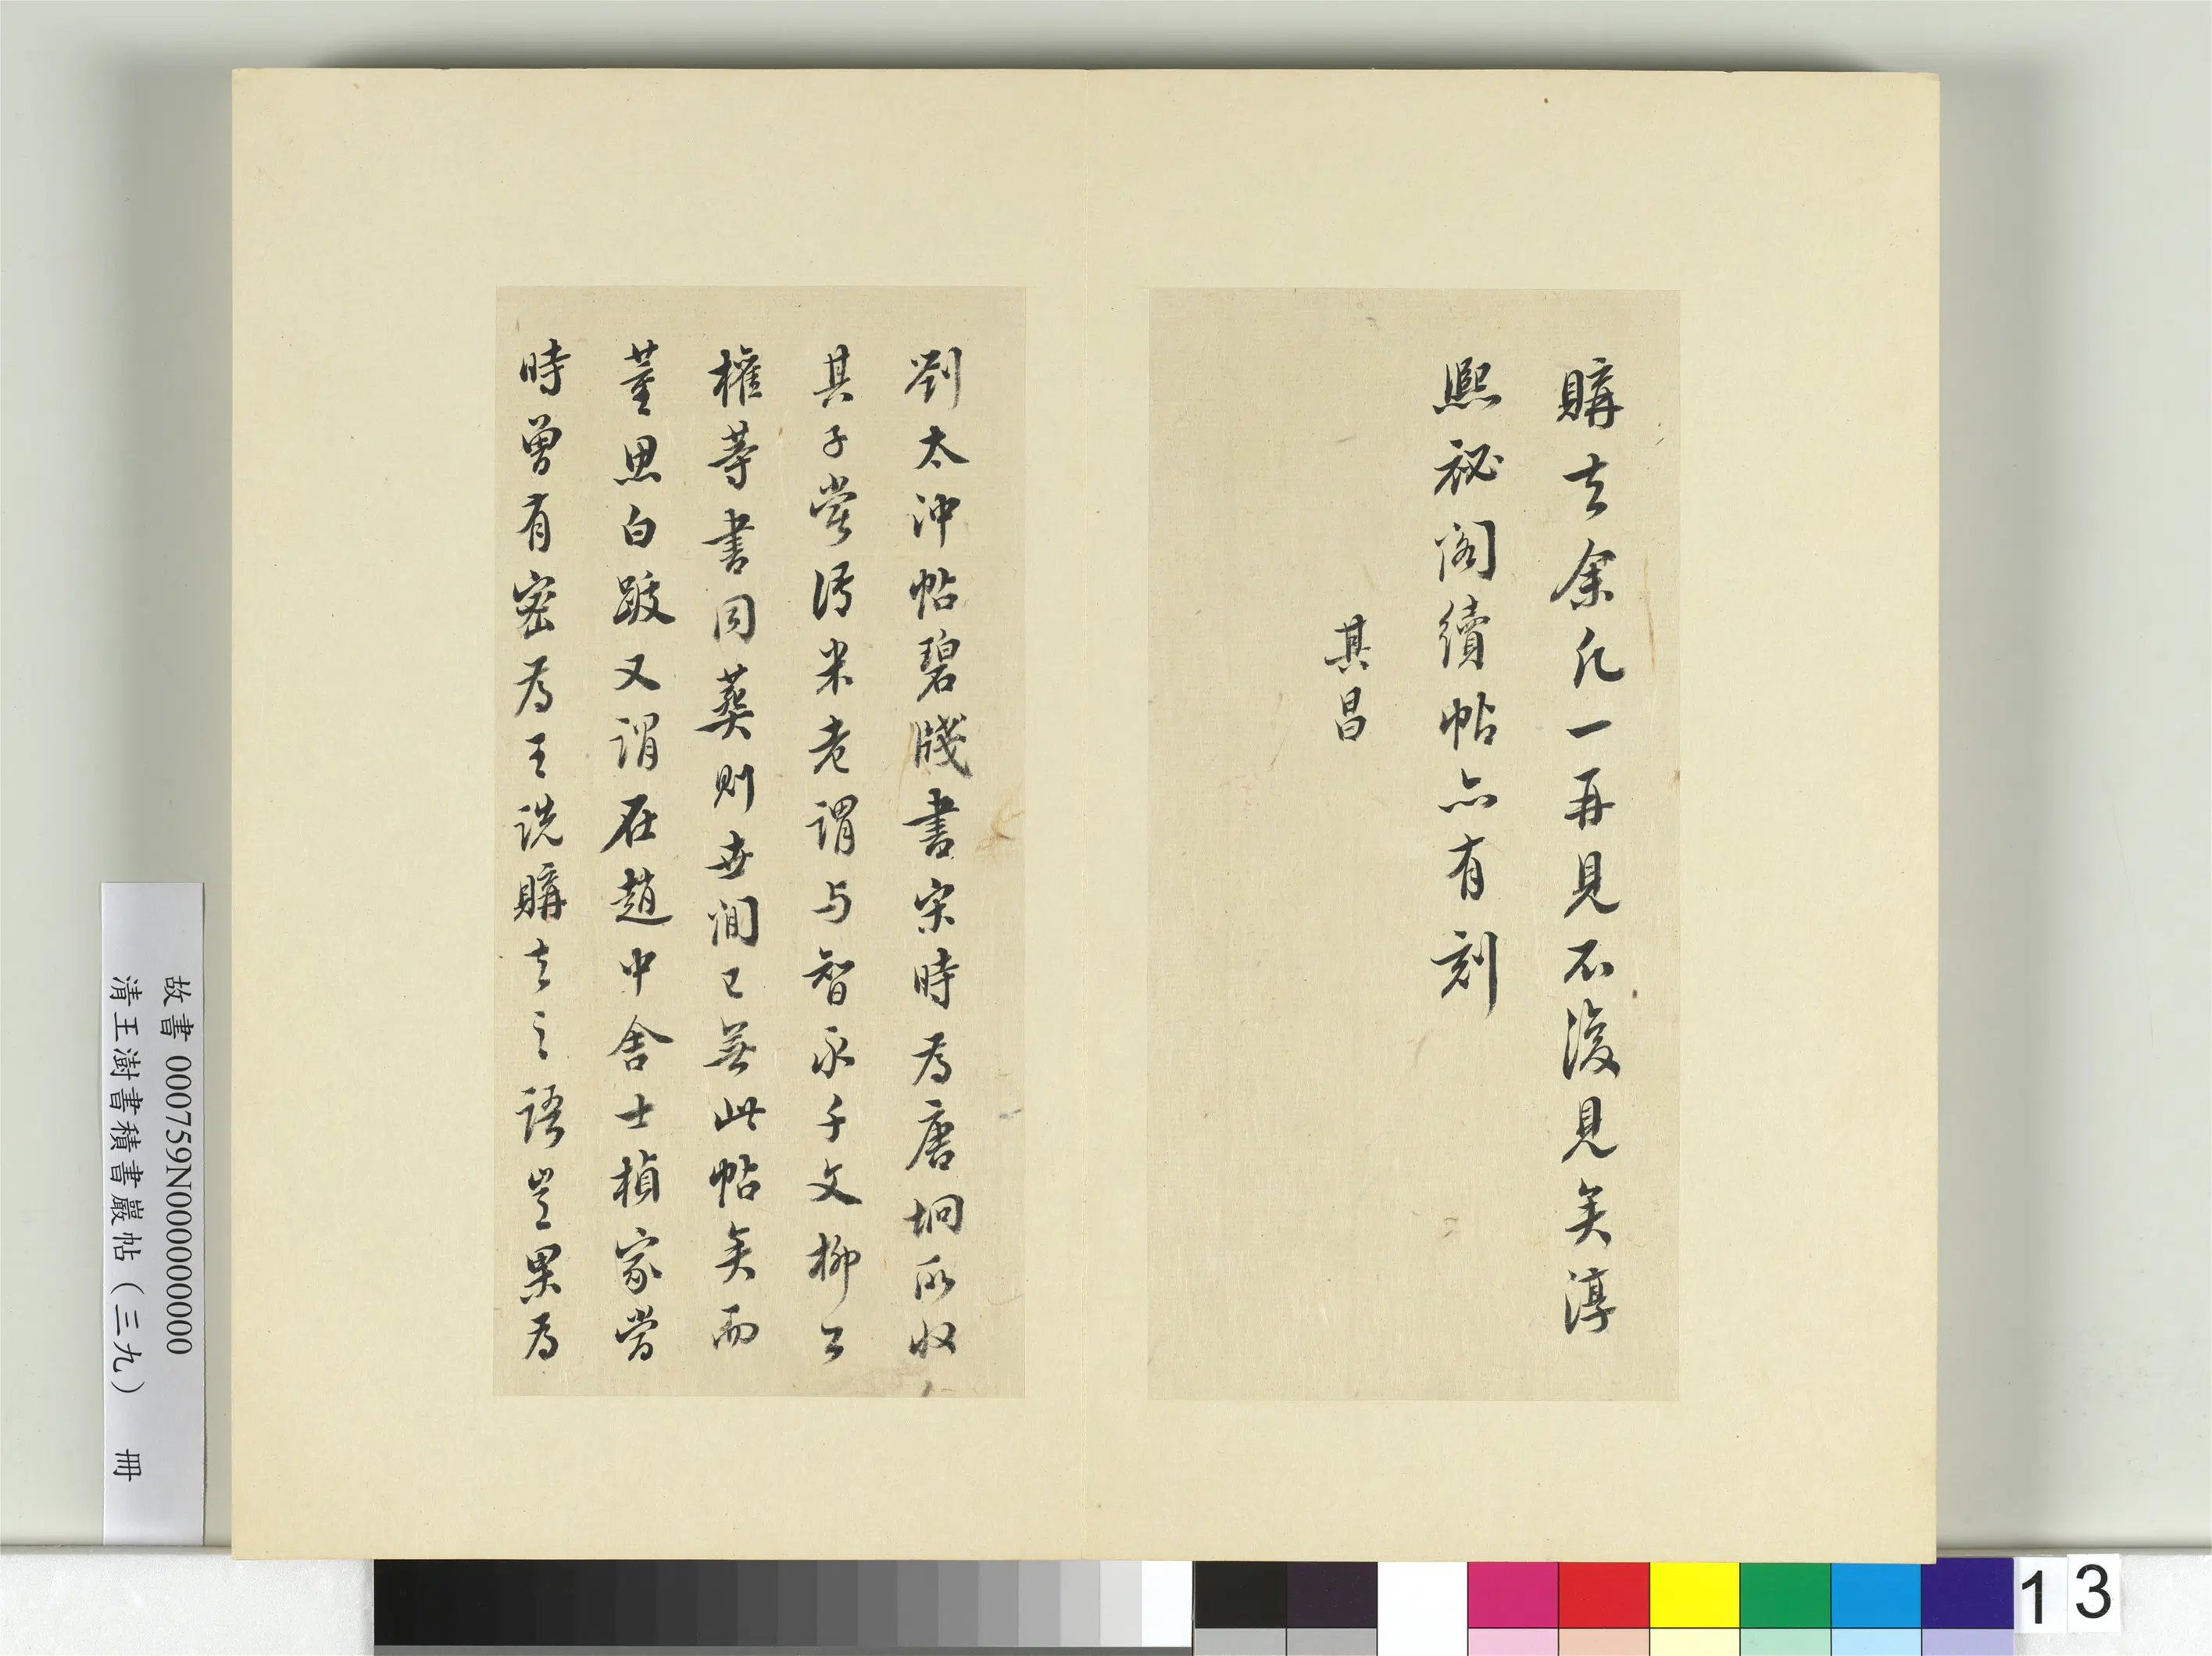 購去余凡一再見不復見矣淳
熙祕閣續帖亦有刻
其昌
劉太沖帖碧牋書宋時為唐坰所收
其子嘗語米老謂与智永千文柳公
權等書同葬則世间已無此帖矣而
董思白跋又謂在趙中舍士楨家當
時曾有密為王詵購去之語豈果為
故書 000759N000000000
清王澍書積書巖帖（三九） 冊
13